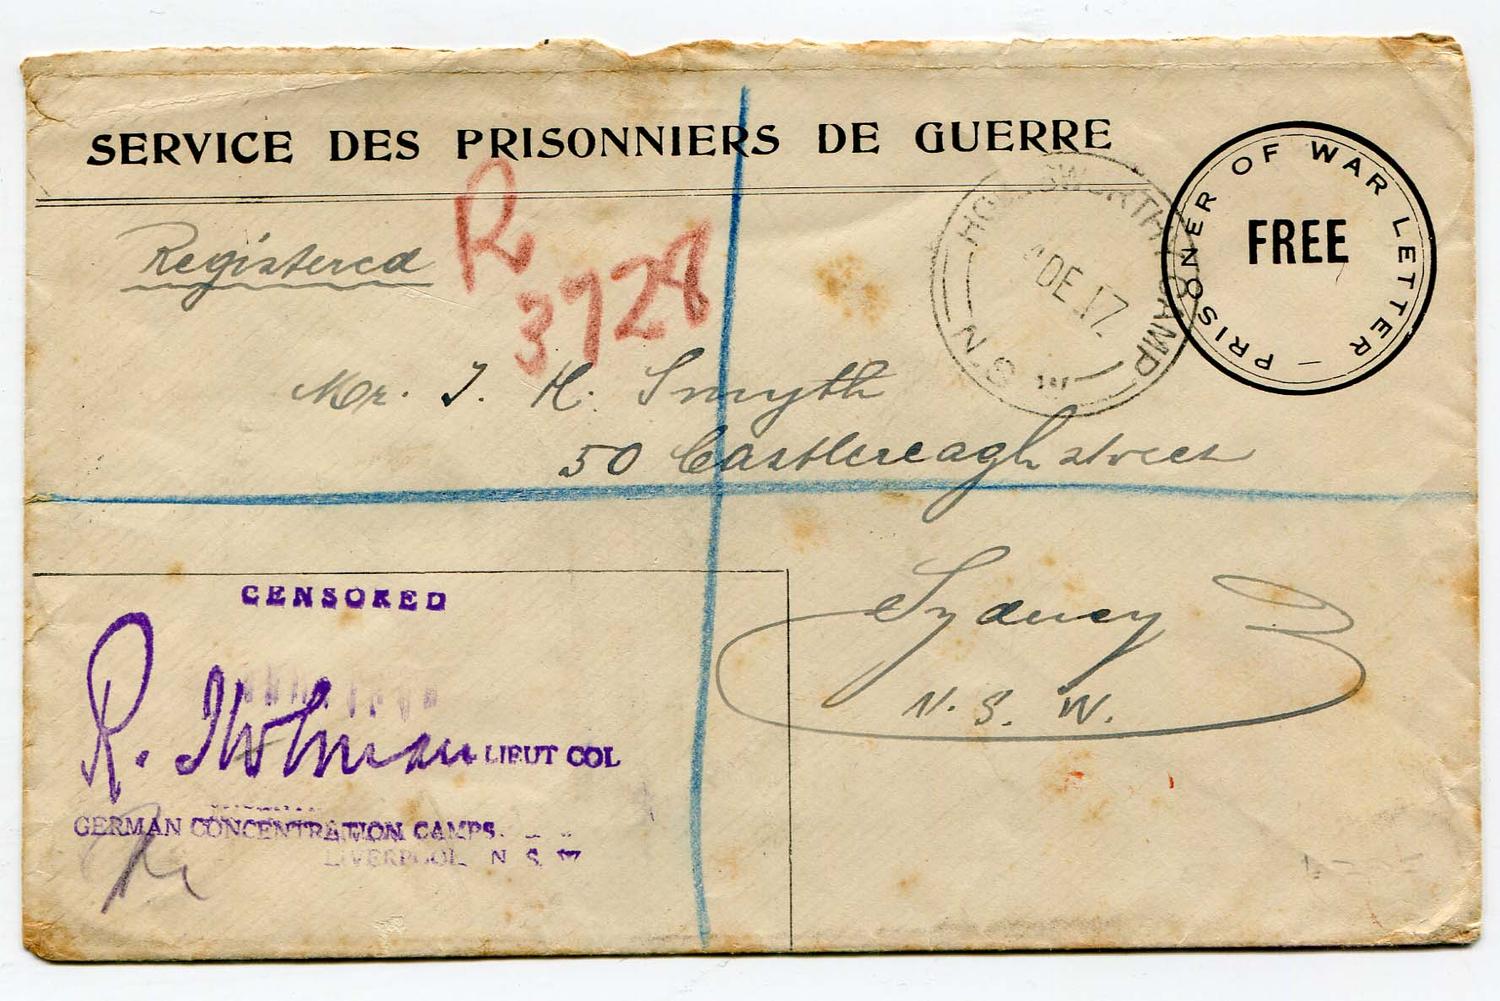 SERVICE DES PRISONNIERS DE GUERRE
PRISONER OF WAR LETTER –
FREE
HOLLSWORTHY CAMP
DE 17
N.S.W
Registered
R
3728
Mr. J. H. Smyth
50 Castlereagh street
Sydney
N. S. W.
CENSORED
R. Holman LIEUT COL
GERMAN CONCENTRATION CAMPS
LIVERPOOL N S W